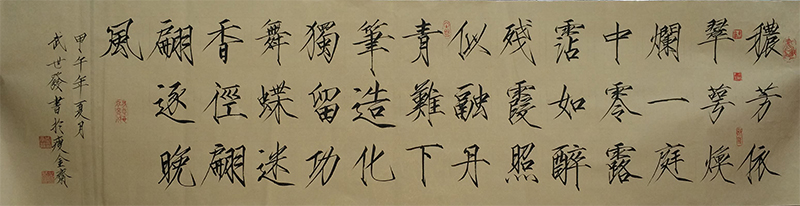 穠芳依
翠萼煥
爛一庭
中零露
霑如醉
殘霞照
似融丹
青難下
筆造化
獨留功
舞蝶迷
香徑翩
翩逐晚
風
甲午年夏月
武世發書於金齋